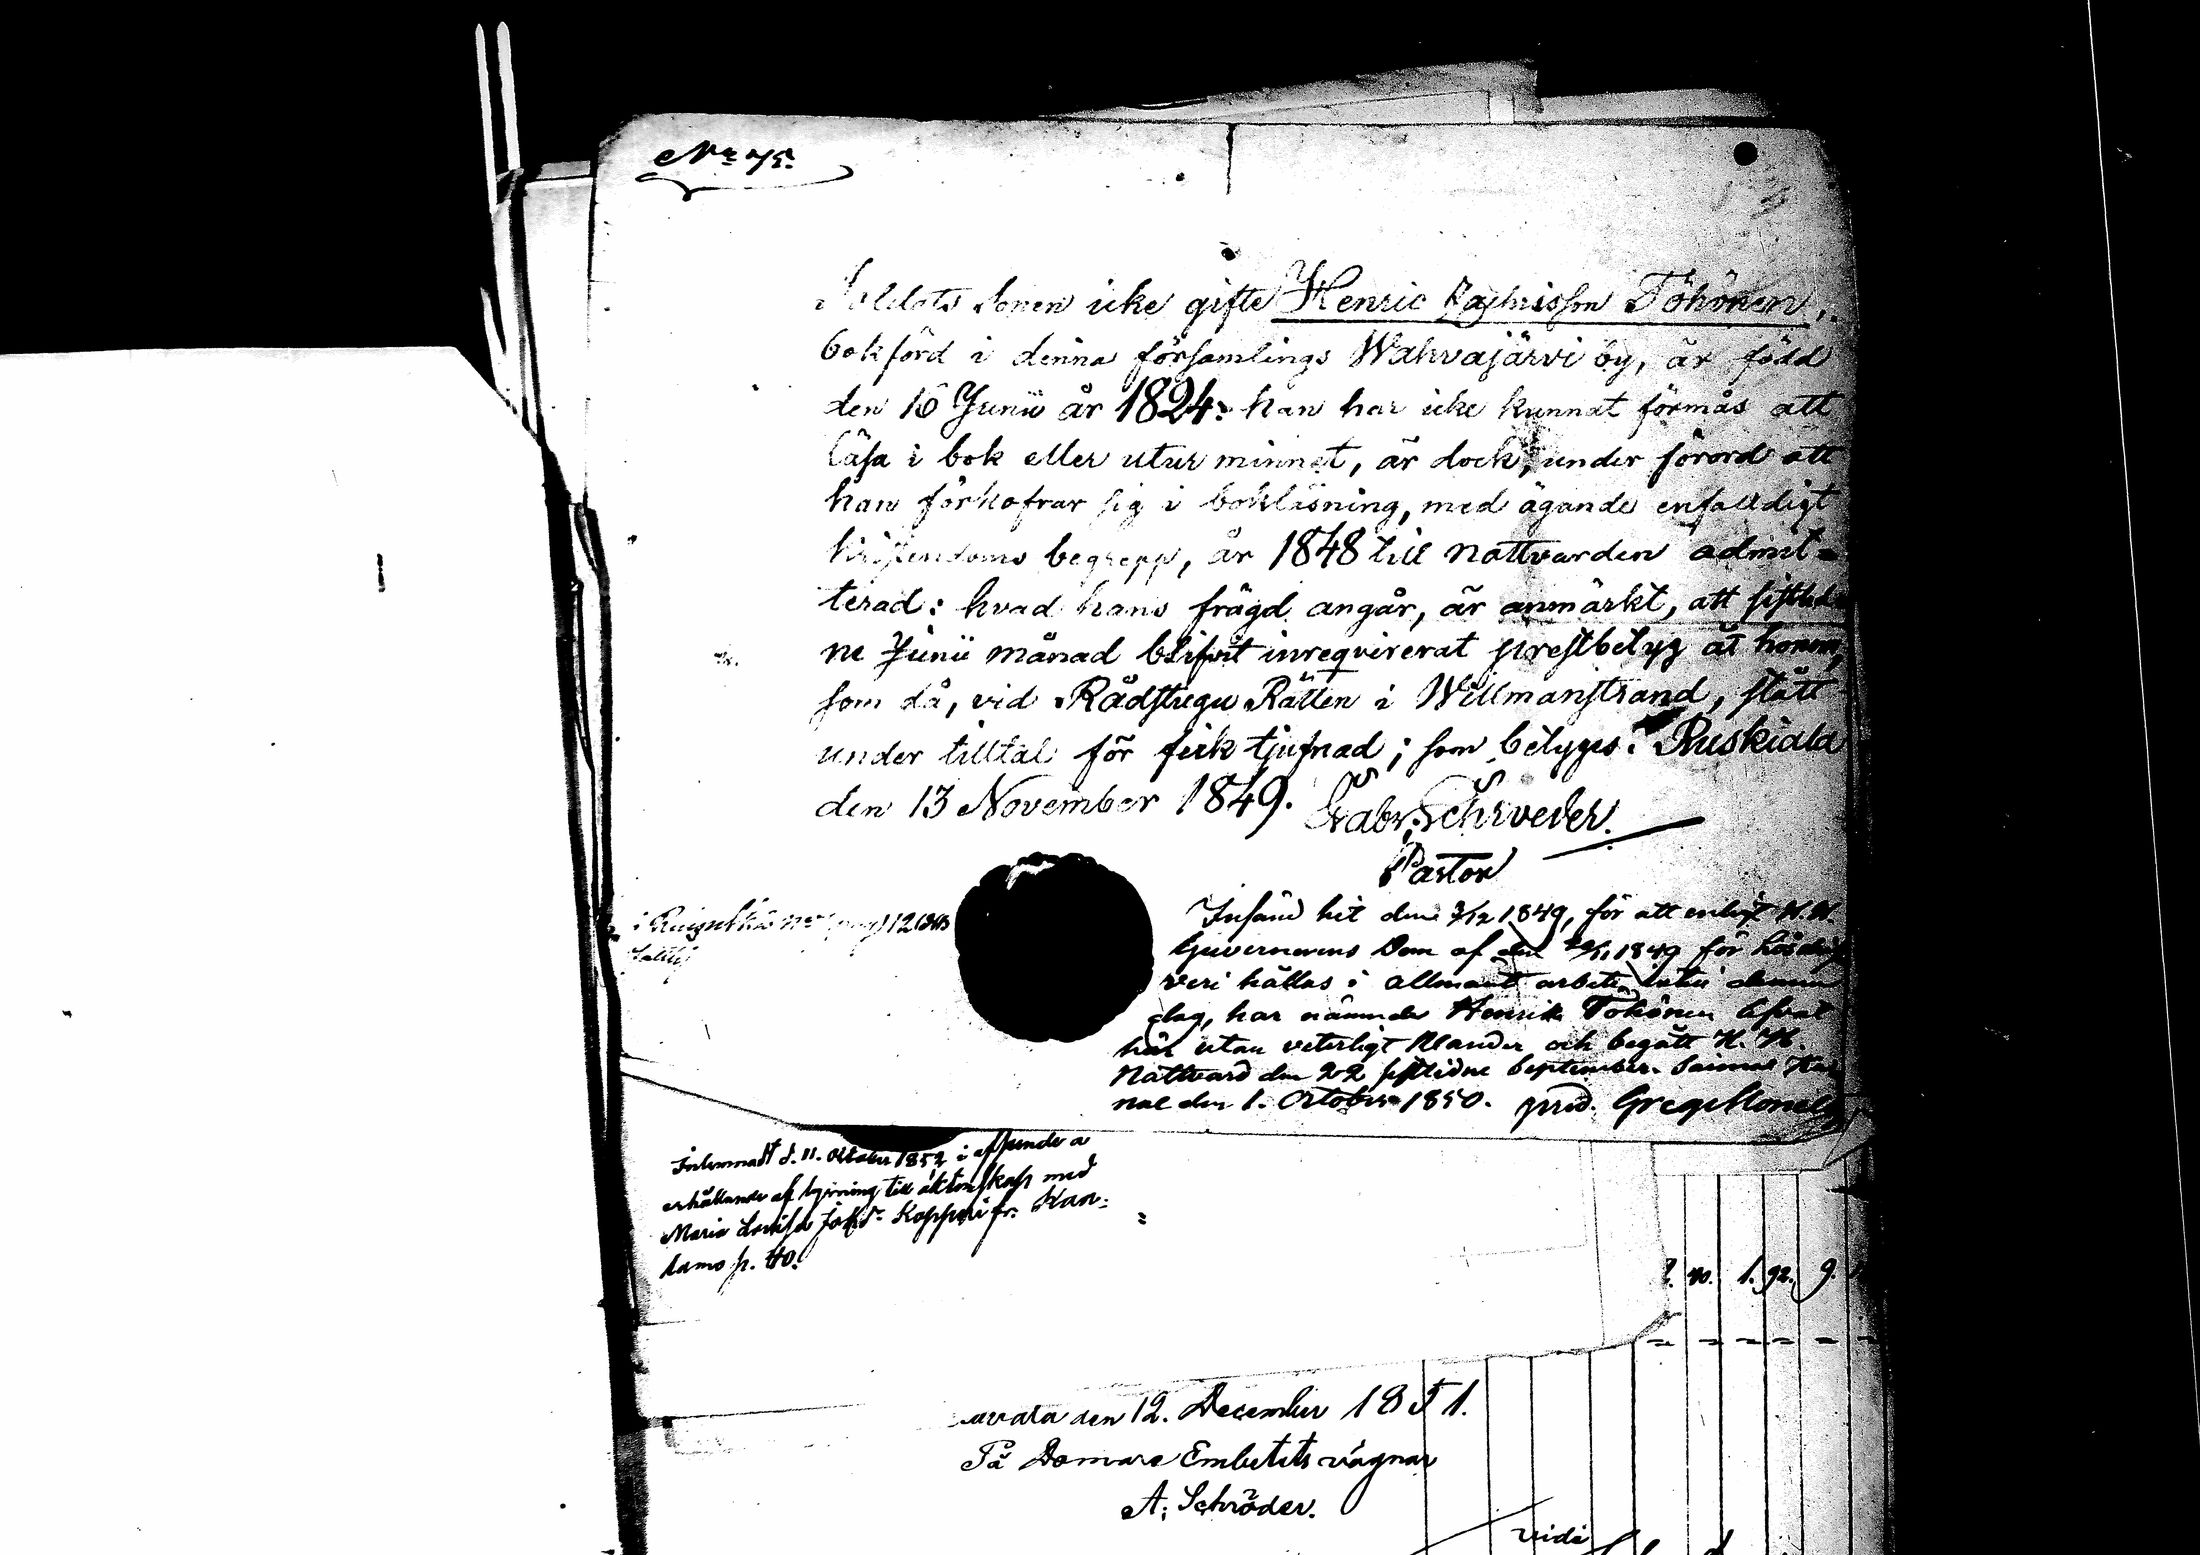 No 75.
Soldats Sonen icke gifte Henric Zachrisson Töhönen,
bokförd i denna församlings Wahvajärvi by, är född
den 16 Junii år 1824: han har icke kunnat förmås att
läsa i bok eller utur minnet, är dock, under förord att
han förkofrar sig i bokläsning, med ägande enfalldigt
kristendoms begrepp, år 1848 till nattvarden admit=
terad: hvad hans frägd angår, är anmärkt, att sistled
ne Junii månad blifvit inreqvirerat prestbetyg åt honom,
som då, vid Rådstugu Rätten i Willmanstrand, stått
under tilltal för fick tjufnad; som betygas. Ruskiala
den 13 November 1849. Gabr. Schrveder.
Pastor
Insänd hit den 3/12 1849, för att enligt H. H.
Guvernörens Dom af den 1849 för lösdrif
veri hållas i allmänt arbete intill denna
dag, har nämnde Henrik Töhönen
här utan veterligt klander och begått H. H.
Nattvard den 22 sistlidne September. Saima Ka
nal den 1. October 1850. pred.
12
Inlemnadt d. 11. October 1852 i afseende a
erhållande af lysning till äktenskap med
Maria Lovisa Kopp fr. Kan-
lamo p. 40.
40. 1. 92. 9.
avara den 12. December 1851.
På Domare Embetets vägnar
A. Schröder.
vidi